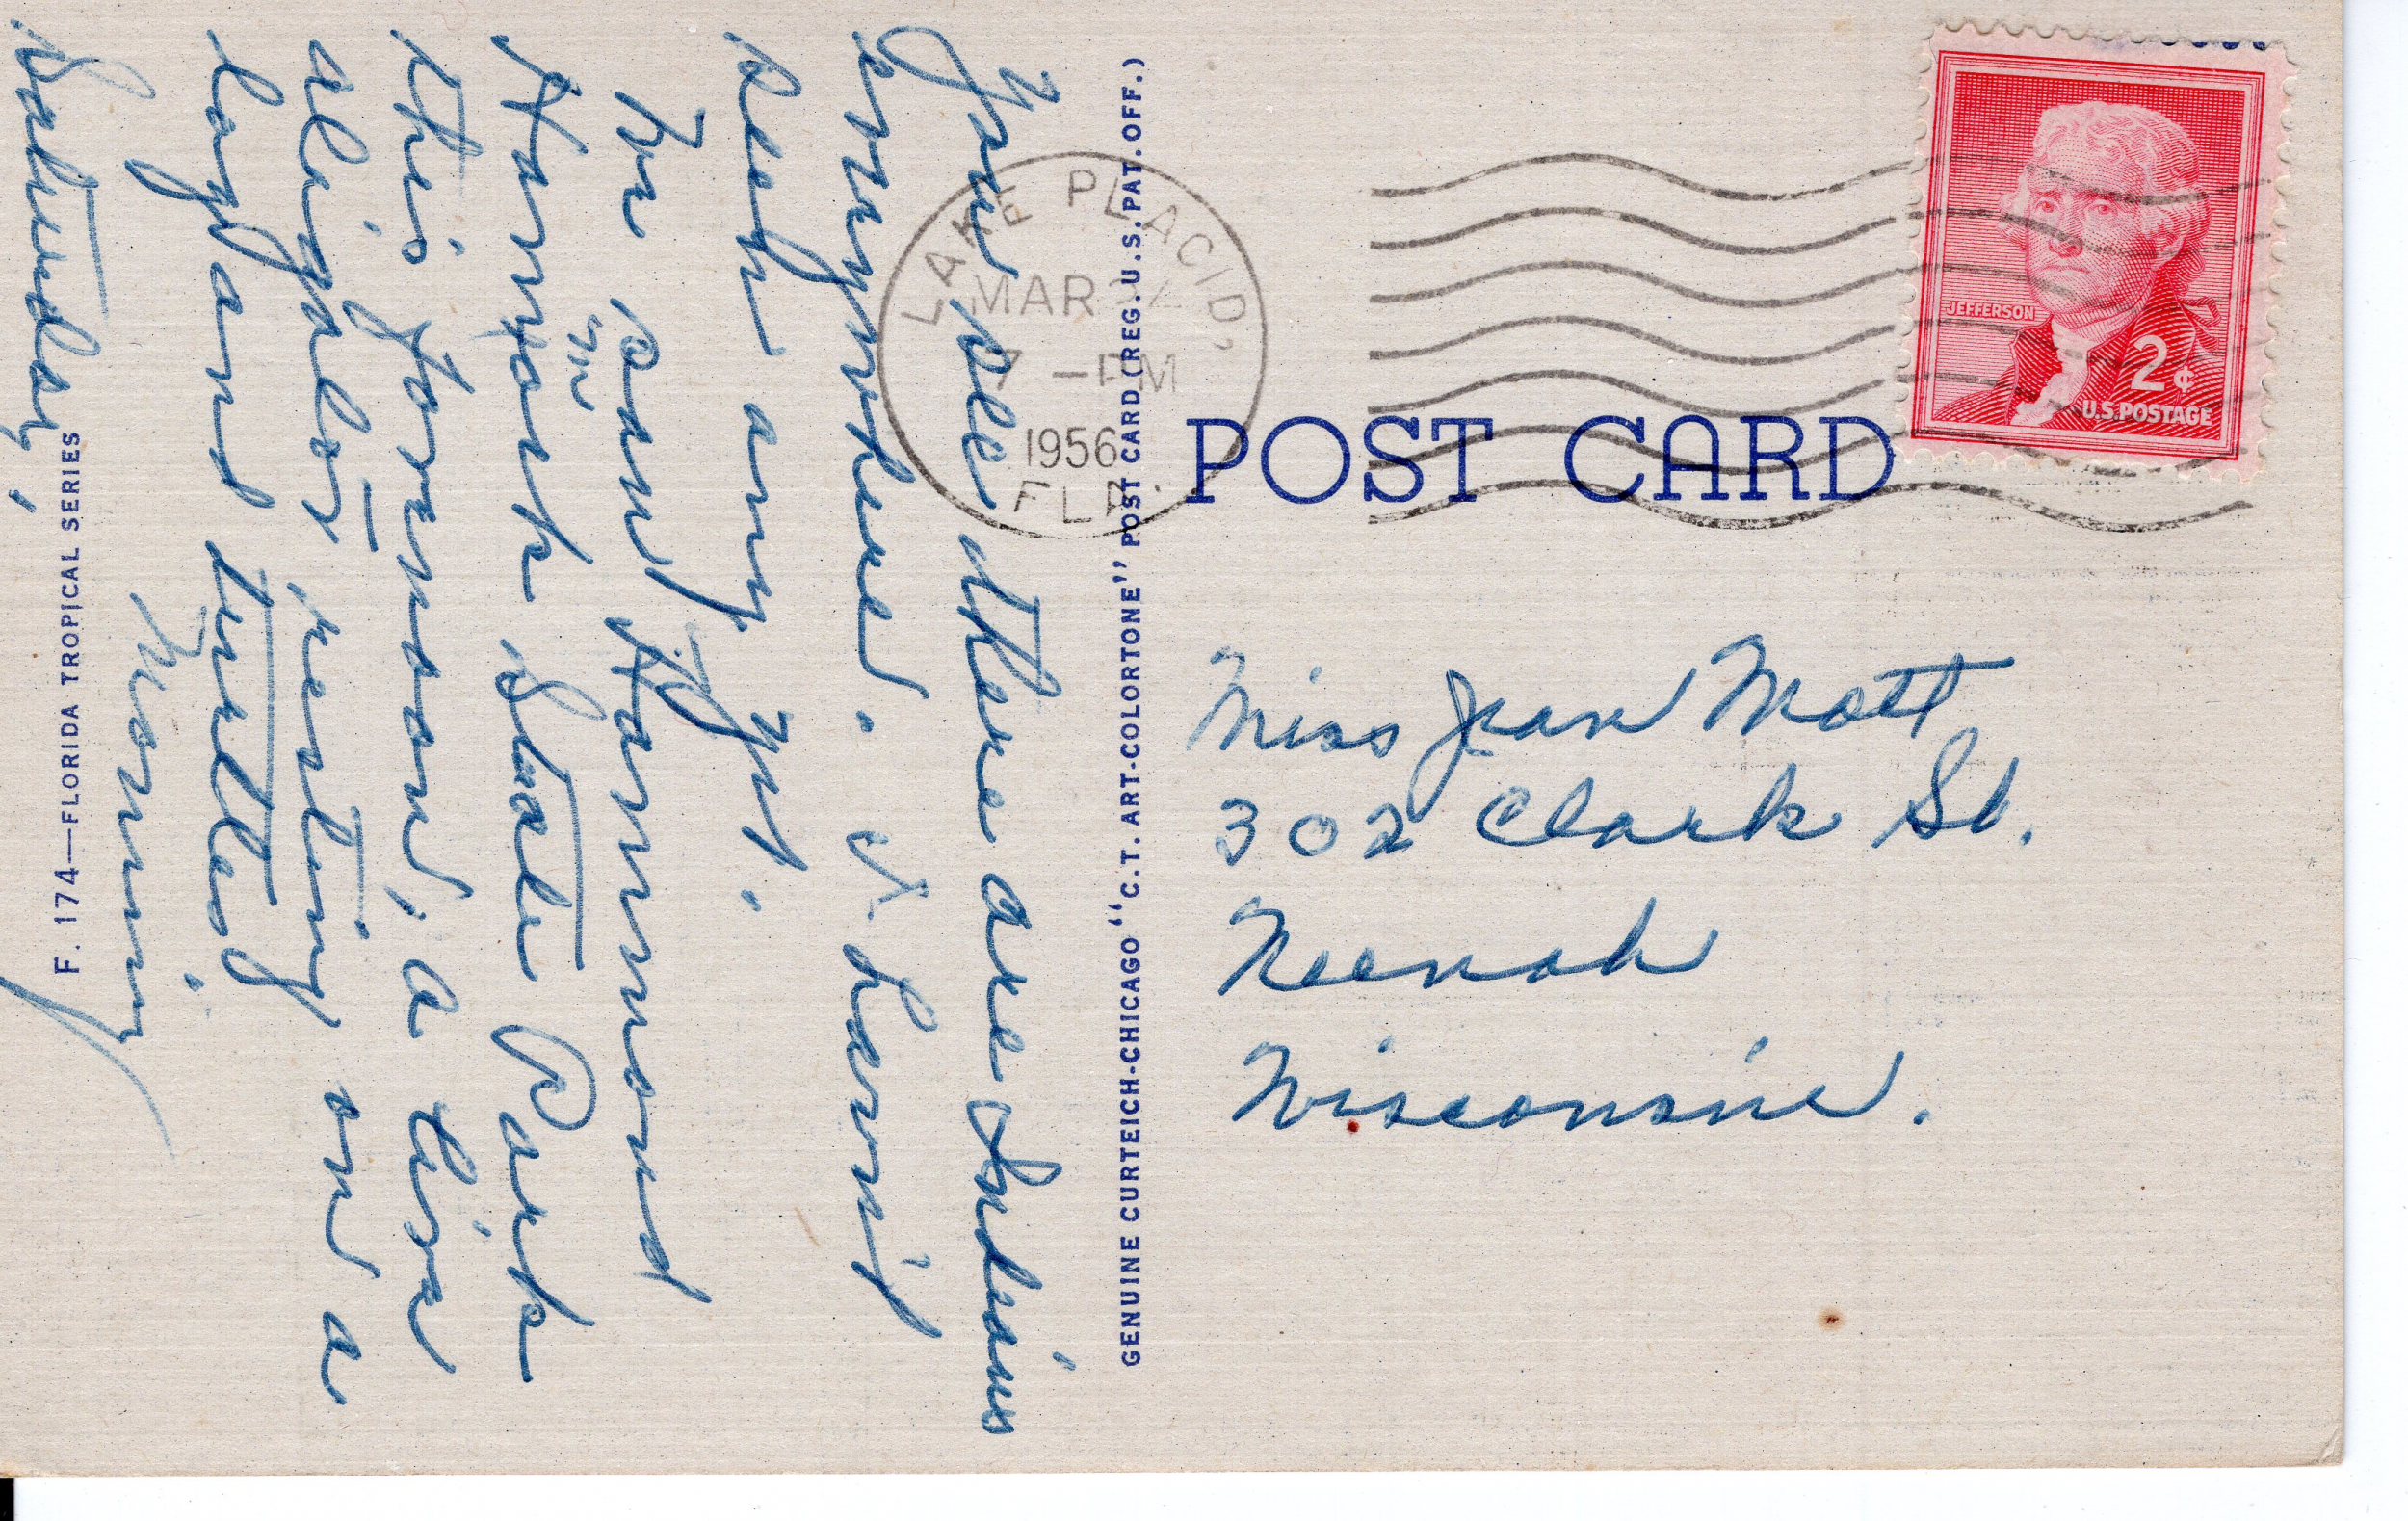 You see there are Indians
everywhere. I haven't
seen any yet.
We saw
in
Hammock State Park
this forenoon, a live
aligator resting on a
log and turtles.
Saturday, morning
F. 174—FLORIDA TROPICAL SERIES
GENUINE CURTEICH-CHICAGO "C.T. ART-COLORTONE" POST CARD (REG. U.S. PAT. OFF.)
LAKE PLACID,
MAR
-PM
1956
FLA.
POST CARD
JEFFERSON
2¢
U.S. POSTAGE
Miss Jean Mott
302 Clark St.
Neenah
Wisconsin.